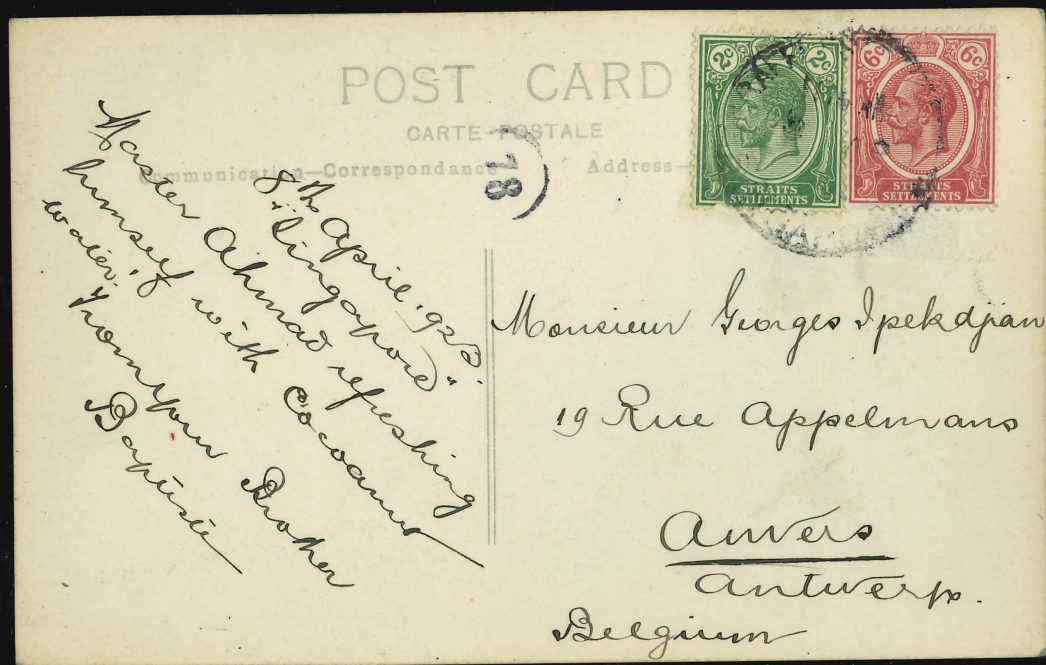 POST CARD
CARTE POSTALE
Communication—Correspondance
Address—
78
2c 2c
STRAITS
SETTLEMENTS
6c 6c
STRAITS
SETTLEMENTS
8th April. 1923.
"Singapore"
Master Ahmad refreshing
himself with Cocoanut
water. From your Brother
Baptiste
Monsieur Georges Ipekdjian
19 Rue Appelmans
Anvers
Antwerp.
Belgium